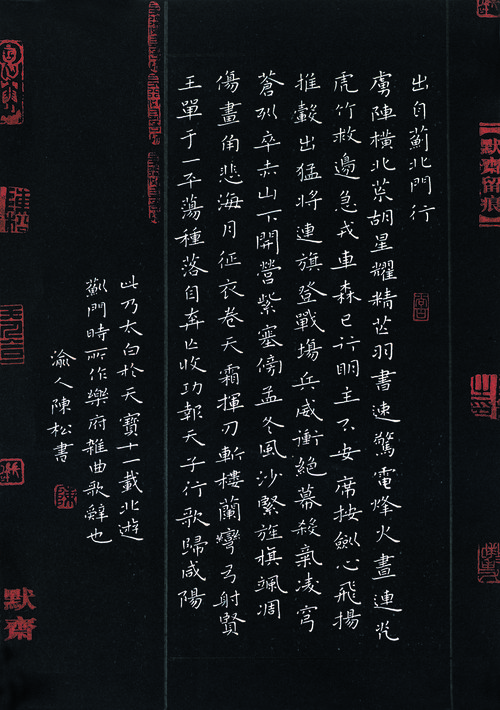 默齋留痕
出自薊北門行
虜陣橫北荒胡星耀精芒羽書速驚電烽火晝連光
虎竹救邊急戎車森已行明主不安席按劍心飛揚
推轂出猛將連旗登戰場兵威衝絕幕殺氣凌穹
蒼列卒赤山下開營紫塞傍孟冬風沙緊旌旗颯凋
傷畫角悲海月征衣卷天霜揮刃斬樓蘭彎弓射賢
王單于一平蕩種落自奔亡收功報天子行歌歸咸陽
此乃太白於天寶十一載北遊
薊門時所作樂府雜曲歌辭也
渝人陳松書
陳
默齋